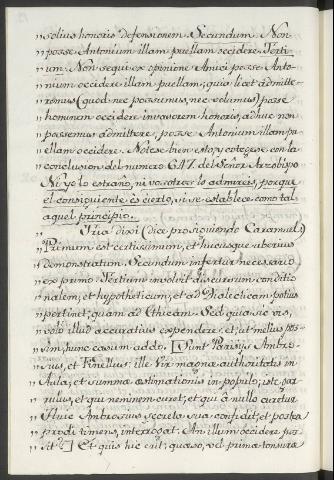 "solius honoris defensionem. Secundum. Non
"posse Antonium illam puellam occidere. Terti-
"um. Non sequi ex opinione Amici posse Anto-
"nium occidere illam puellam; quia licet admitte-
"remus (quod nec possumus, nec volumus) posse
"hominem occidere invasorem honoris, adhuc non
"possemus admittere, posse Antonium illam pu-
"ellam occidere. Notese bien esto, y cotegese con la
conclusion del numero 647. del Señor Arzobispo
Ni yo lo estraño, ni vosotros lo admireis, porque
el consiguiente es cierto, si se establece como tal
aquel principio.
"Tria dixi (dice prosiguiendo Caramuel)
"Primum est certissimum, et hucusque uberius
"demonstratum. Secundum infertur necessario
"ex primo. Tertium involvit discursum conditio
"nalem, et hypotheticum; et ad Dialecticam potius
"pertinet, quam ad Ethicam. Sed quasic vis,
"volo illud accuratius expendere, et, ut melius pos-
"sim, hunc casum addo. [Sunt Parisijs Ambro-
"sius, et Finellus: ille Vir magnæ authoritatis in
"Aula, et summæ æstimationis in populo; iste par-
"vulus, et qui neminem curet, et qui â nullo curetur
"Huic Ambrosius secreta sua confidit, et postea
"prodi timens, interrogat. An illum occidere pos-
"sit?] Et quis hic erit, quæso, vel prima tonsura